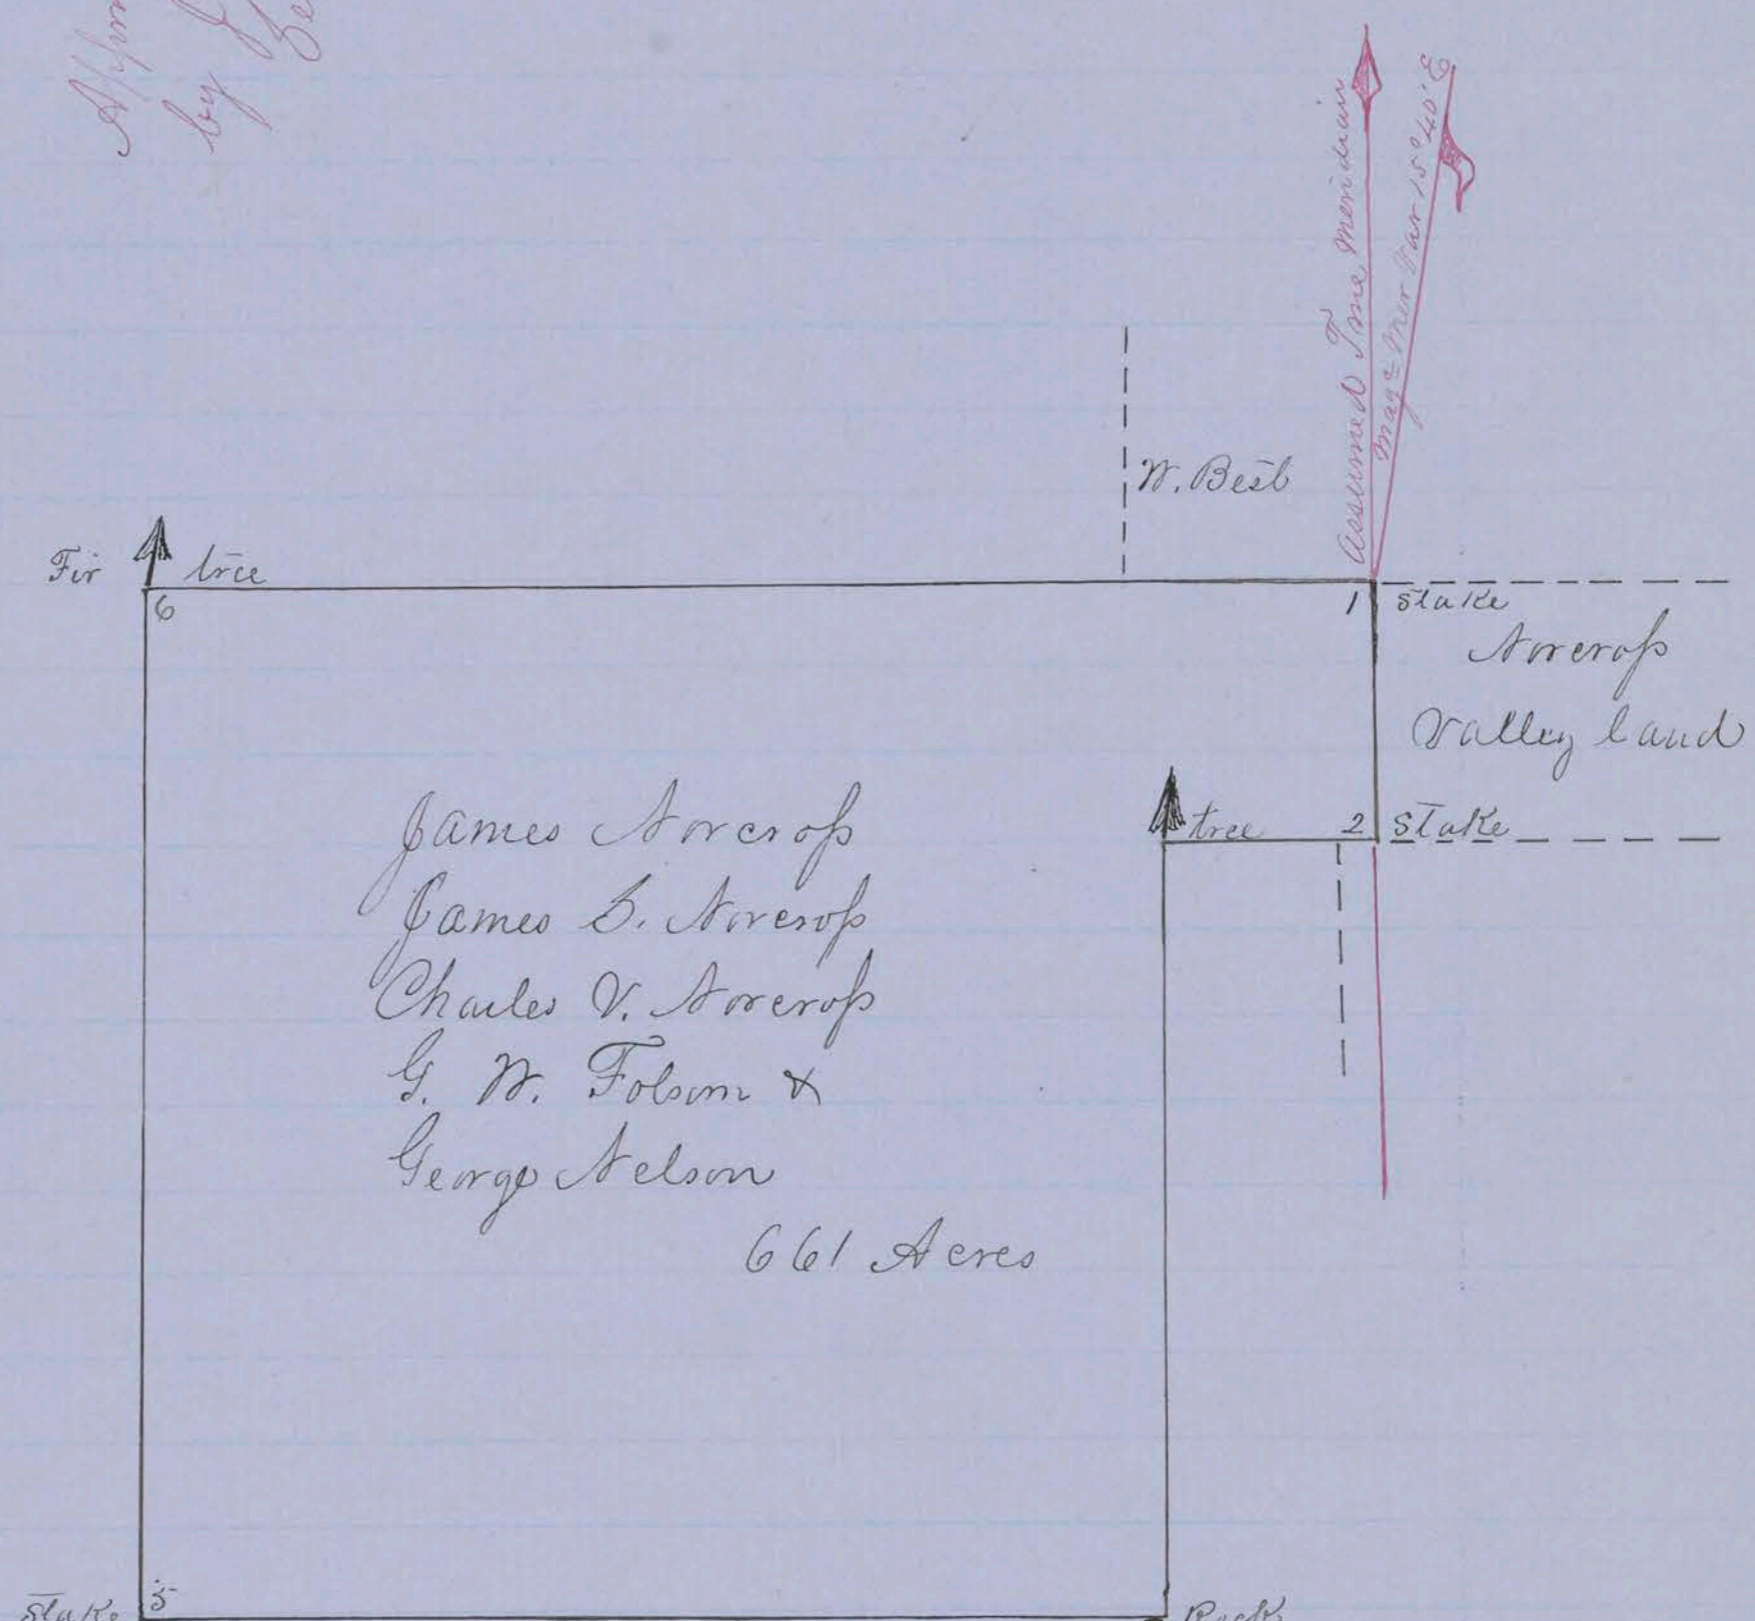 by
Assumed True Meridian
Mag<u>c</u> Mer Var 15° 40' E
W. Best
Fir tree
6
1 Stake
Norcross
Valley land
tree 2 Stake
James Norcross
James S. Norcross
Charles V. Norcross
G. W. Folsom &
George Nelson
661 Acres
Stake 5
Rock